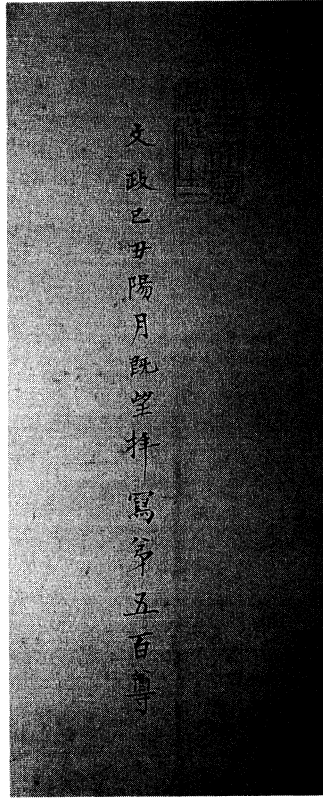 文政己丑陽月既望拝寫第五百尊